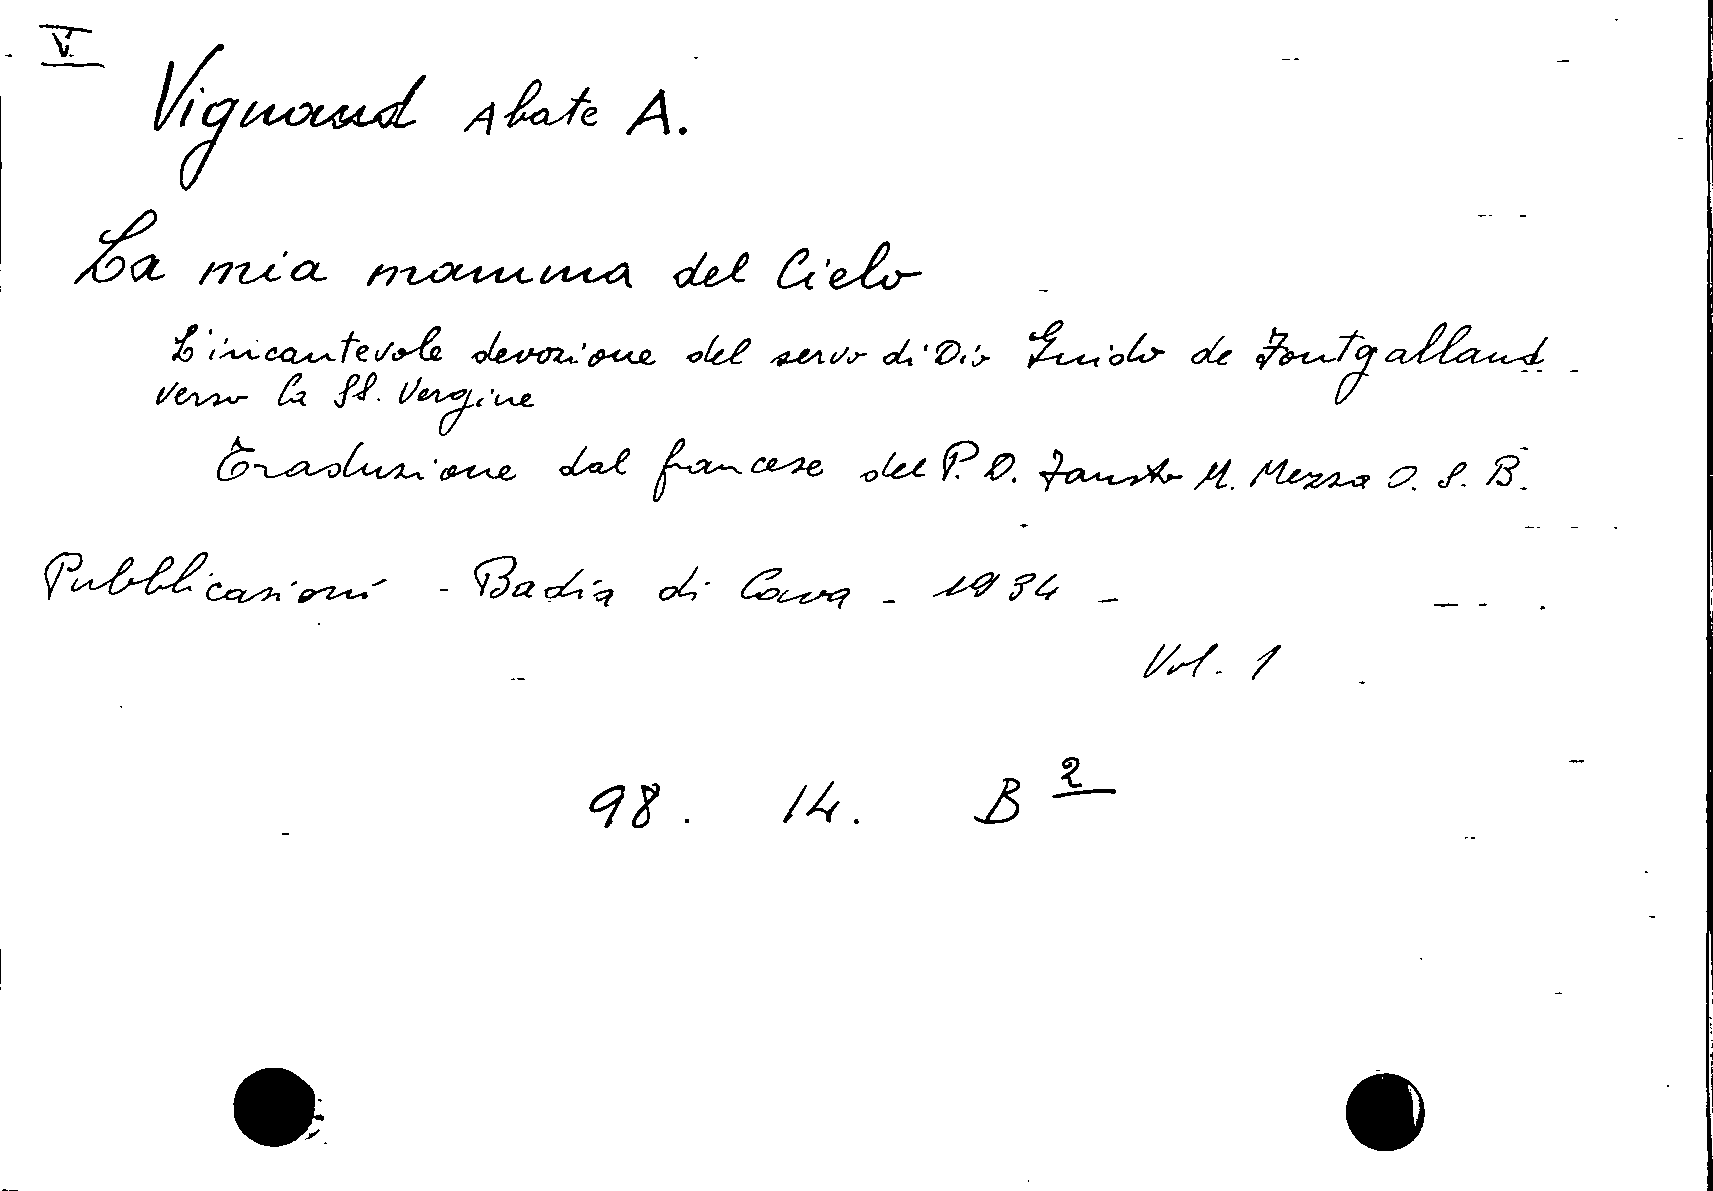 V
Vignaud Abate A.
La mia mamma del Cielo
L'incantevole devozione del servo di Dio Guido de Fontgalland
verso la SS. Vergine
Traduzione dal francese del P. D. Fausto M. Mezza O. S. B.
Pubblicazioni - Badia di Cava - 1934 -
Vol. 1
98. 14. B 2